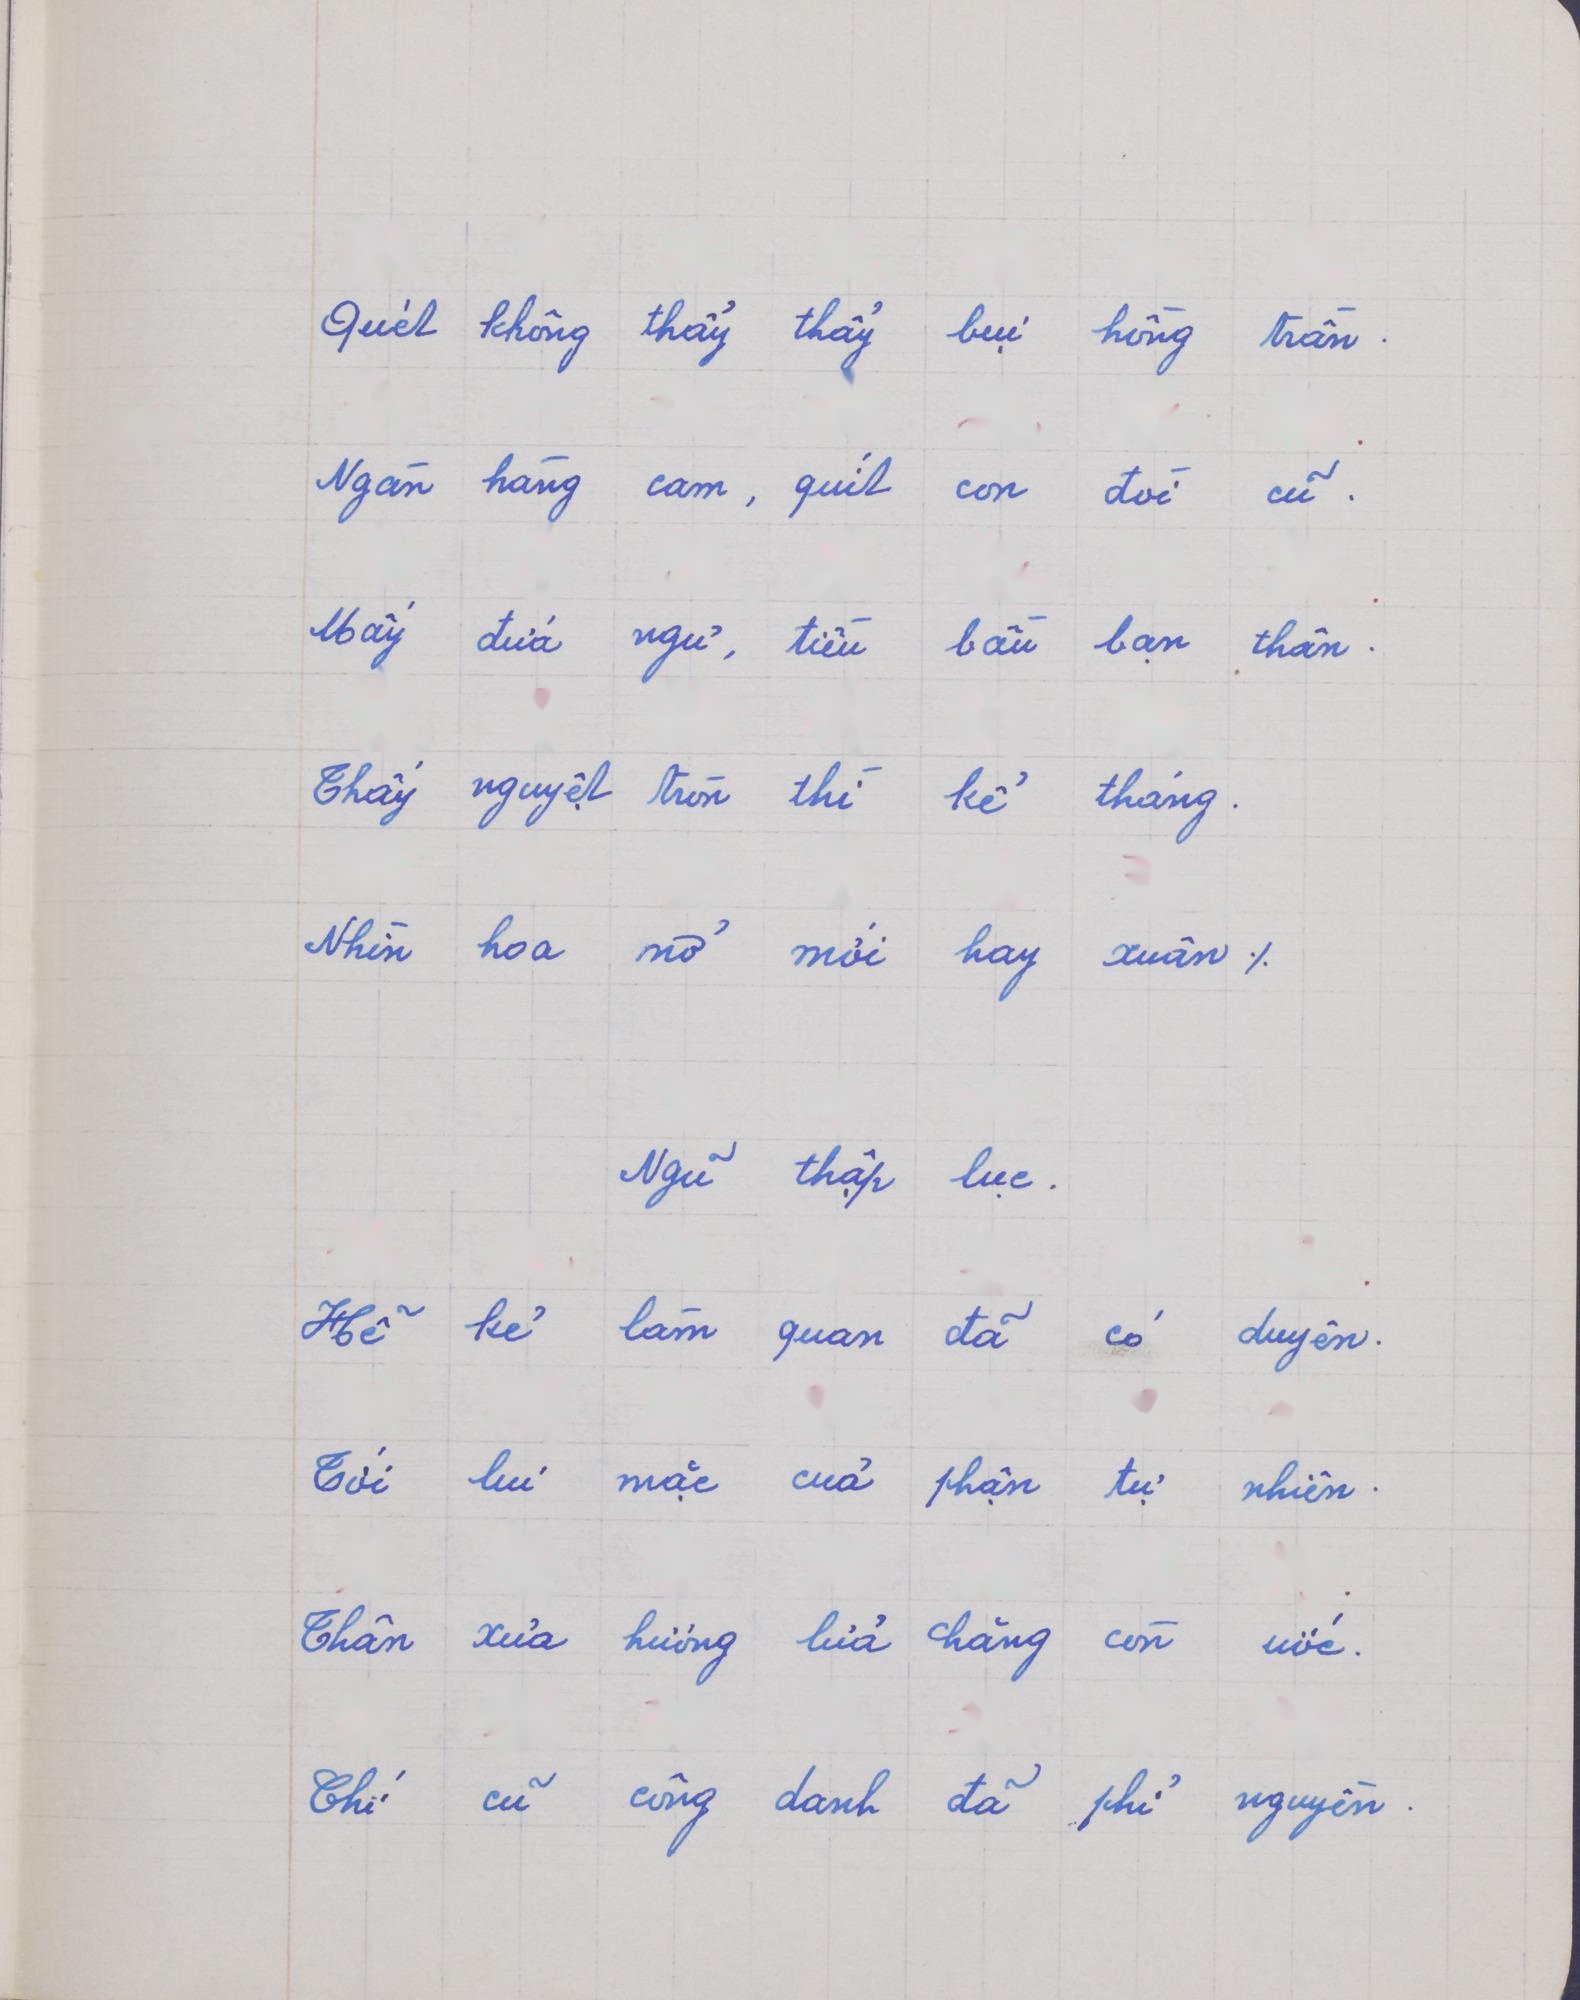 Quét không thảy thảy bụi hồng trần.
Ngàn hàng cam, quít con đòi cũ.
Mấy đứa ngư, tiều bầu bạn thân.
Thấy nguyệt tròn thì kể tháng.
Nhìn hoa nở mới hay xuân ./.
Ngũ thập lục.
Hễ kẻ làm quan đã có duyên.
Tới lui mặc của phận tự nhiên.
Thân xưa hương lửa chăng còn ước.
Chí cũ công danh đã phỉ nguyền.